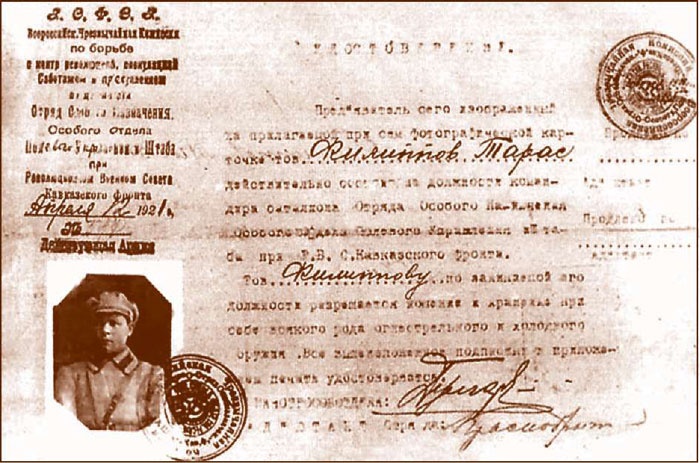 Р.С.Ф.С.Р.
Всероссийск. Чрезвычайная Комиссия
по борьбе
с контр революцией, спекуляцией
Саботажем и
Отряд Особого Назначения.
Особого отдела
Полевого Управления Штаба
при
Революцион Военном Совета
Кавказского фронта
Апреля 12 1921г.
№
Действующая Армия
УДОСТОВЕРЕНИЕ.
Пред'явитель сего изображенный
на прилагаемой при сем фотографической кар-
точке тов. Филиппов Тарас
действительно состоит на должности коман-
дира баталиона Отряда Особого Назначения
Особого Отдела Полевого Управления Шта
ба при Р.В.С. Кавказского фронта.
Тов. Филиппову, по занимаемой его
должности разрешается ношение и хранение при
себе всякого рода огнестрельного и холодного
оружия. Все вышеизложенное подписью и приложе-
нием печати удостоверяется.